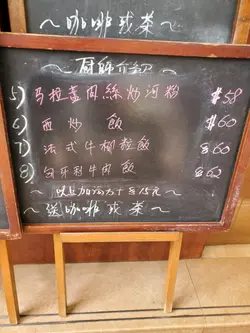 ~咖啡或茶~
~厨師介紹~
5) 馬拉盞肉絲炒河粉 $58
6) 西炒飯 $60
7) 法式牛柳粒飯 $60
8) 匈牙利牛肉飯 $62
~送咖啡或茶~